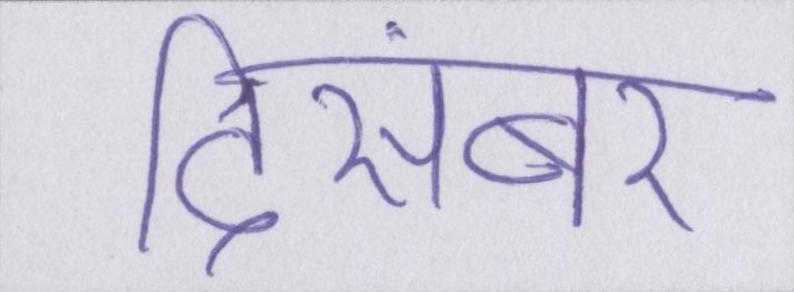 दिसंबर